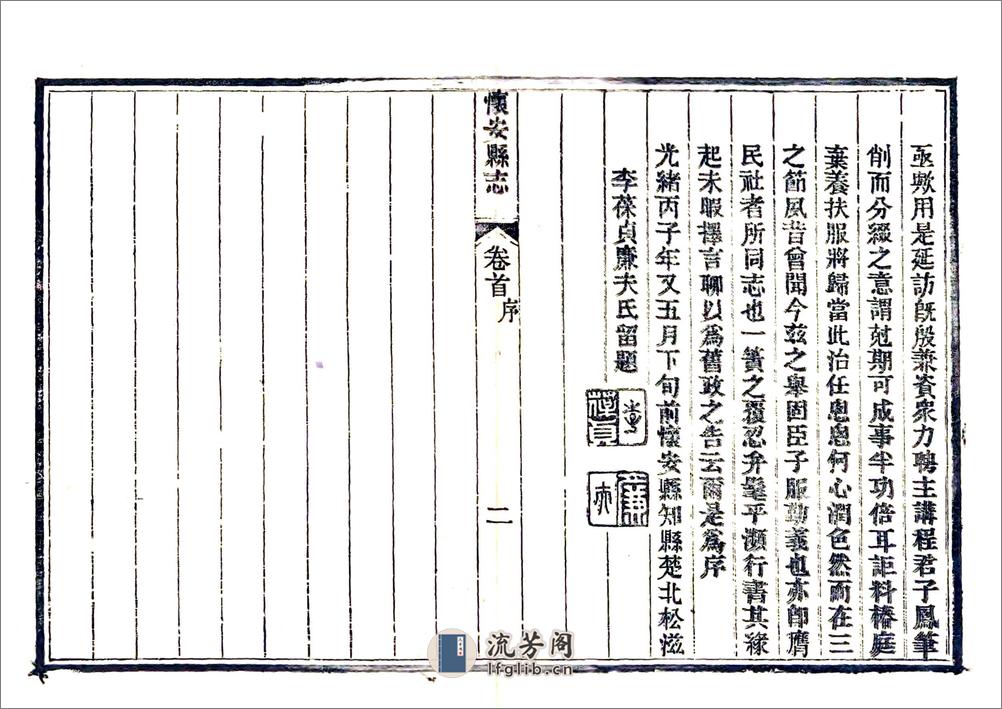 亟歟用是延訪旣殷兼資衆力聘主講程君子鳳筆
削而分綴之意謂尅期可成事半功倍耳詎料椿庭
棄養扶服將歸當此治任悤悤何心潤色然而在三
之節風昔曾聞今茲之舉固臣子服勤義也亦即膺
民社者所同志也一簣之覆忍弁髦乎瀕行書其緣
起未暇擇言聊以爲舊政之告云爾是爲序
光緒丙子年又五月下旬前懷安縣知縣楚北松滋
李葆貞廉夫氏留題
李葆貞
廉夫
懷安縣志
卷首
序
二
流芳阁
lfglib.cn